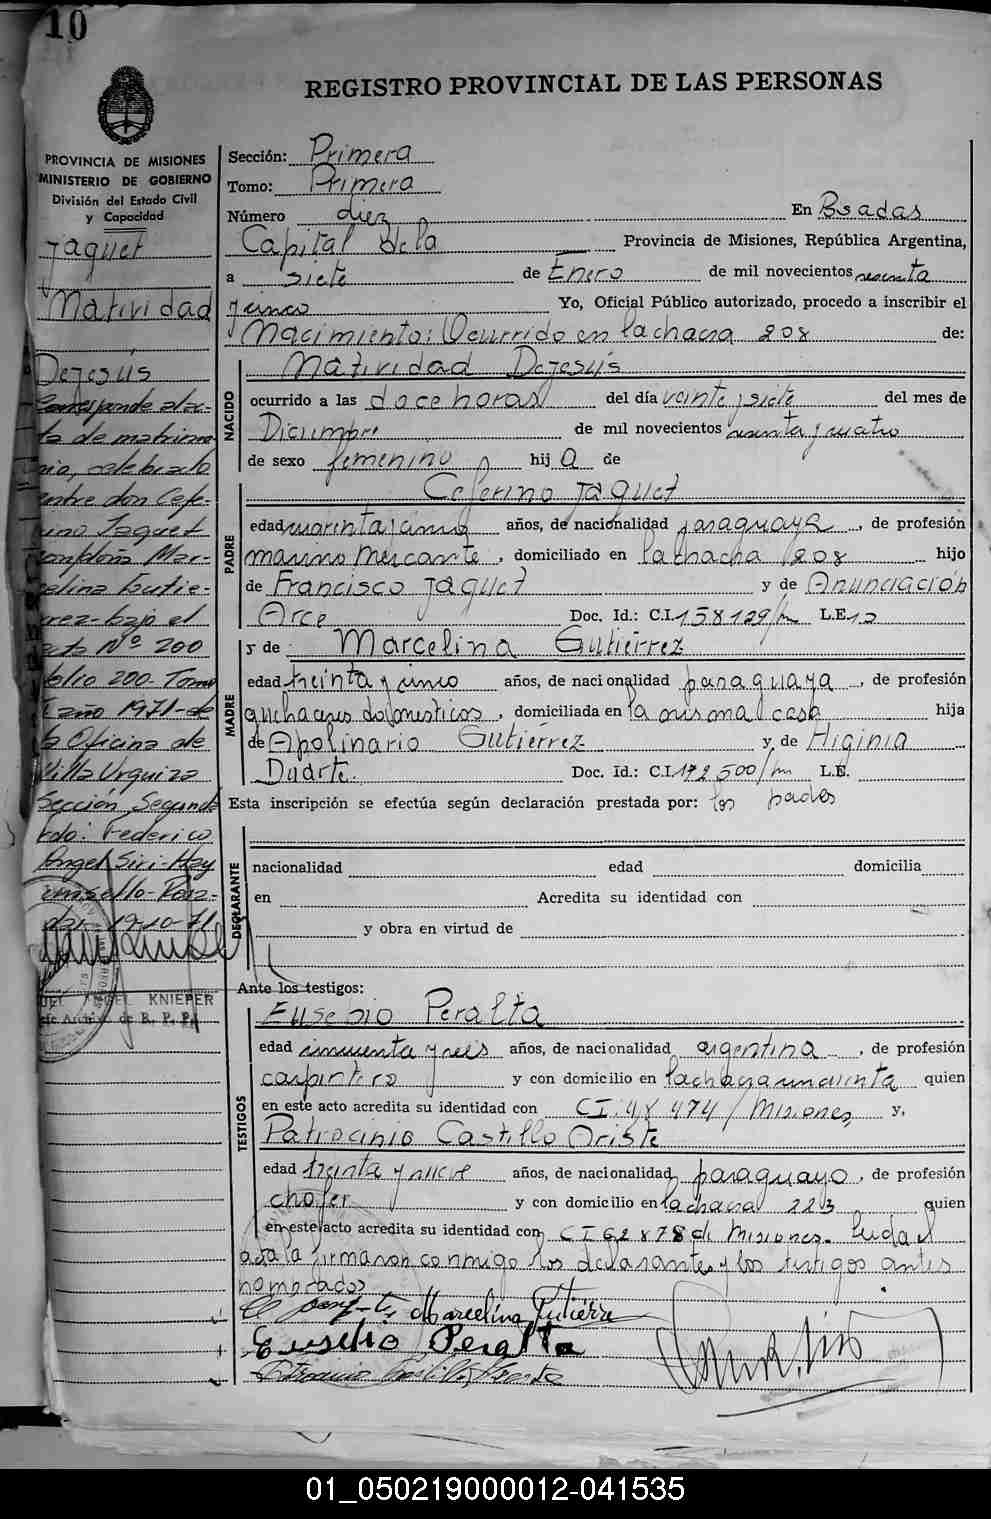 10
REGISTRO PROVINCIAL DE LAS PERSONAS
PROVINCIA DE MISIONES
MINISTERIO DE GOBIERNO
División del Estado Civil
y Capacidad
Jaquet
Natividad
Dejesús
Corresponde al ac-
ta de matrimo-
nio, celebrado
entre don Cefe-
rino Jaquet
con doña Mar-
celina Gutie-
rrez - bajo el
acta Nº 200
folio 200. Tomo
I año 1971 - de
la Oficina de
Villa Urquiza
Sección Segunda
Fdo: Federico
Angel Siri - Hay
un sello - Posa-
das 19-10-71
ANGEL KNIEPER
Archiv. de R. P. P.
Sección: Primera
Tomo: Primero
Número diez En Psadas
Capital de la Provincia de Misiones, República Argentina,
a siete de Enero de mil novecientos sesenta
y cinco Yo, Oficial Público autorizado, procedo a inscribir el
Nacimiento: Ocurrido en la chacra 208 de:
NACIDO
Natividad Dejesús
ocurrido a las doce horas del día veinte y siete del mes de
Diciembre de mil novecientos sesenta y cuatro
de sexo femenino hija de
PADRE
Ceferino Jaquet
edad cuarenta y cinco años, de nacionalidad paraguaya, de profesión
marino mercante, domiciliado en la chacra 208 hijo
de Francisco Jaquet y de Anunciación
Arce Doc. Id.: C.I. 158129/m L.E.
MADRE
y de Marcelina Gutiérrez
edad treinta y cinco años, de nacionalidad paraguaya, de profesión
quehaceres domésticos, domiciliada en la misma casa hija
de Apolinario Gutiérrez y de Higinia
Duarte. Doc. Id.: C.I. 172500/m L.E.
Esta inscripción se efectúa según declaración prestada por: los padres
DECLARANTE
nacionalidad edad domicilia
en Acredita su identidad con
y obra en virtud de
Ante los testigos:
TESTIGOS
Eusebio Peralta
edad cincuenta y seis años, de nacionalidad argentina, de profesión
carpintero y con domicilio en la chacra quien
en este acto acredita su identidad con CI. 48 474/Misiones y,
Patrocinio Castillo Oriste
edad treinta y nueve años, de nacionalidad paraguayo, de profesión
chofer y con domicilio en la chacra 223 quien
en este acto acredita su identidad con CI 62 878 de Misiones. Leida el
acta la firmaron conmigo los declarantes y los testigos antes
nombrados
Marcelina Gutiérre
Eusebio Peralta
01_050219000012-041535